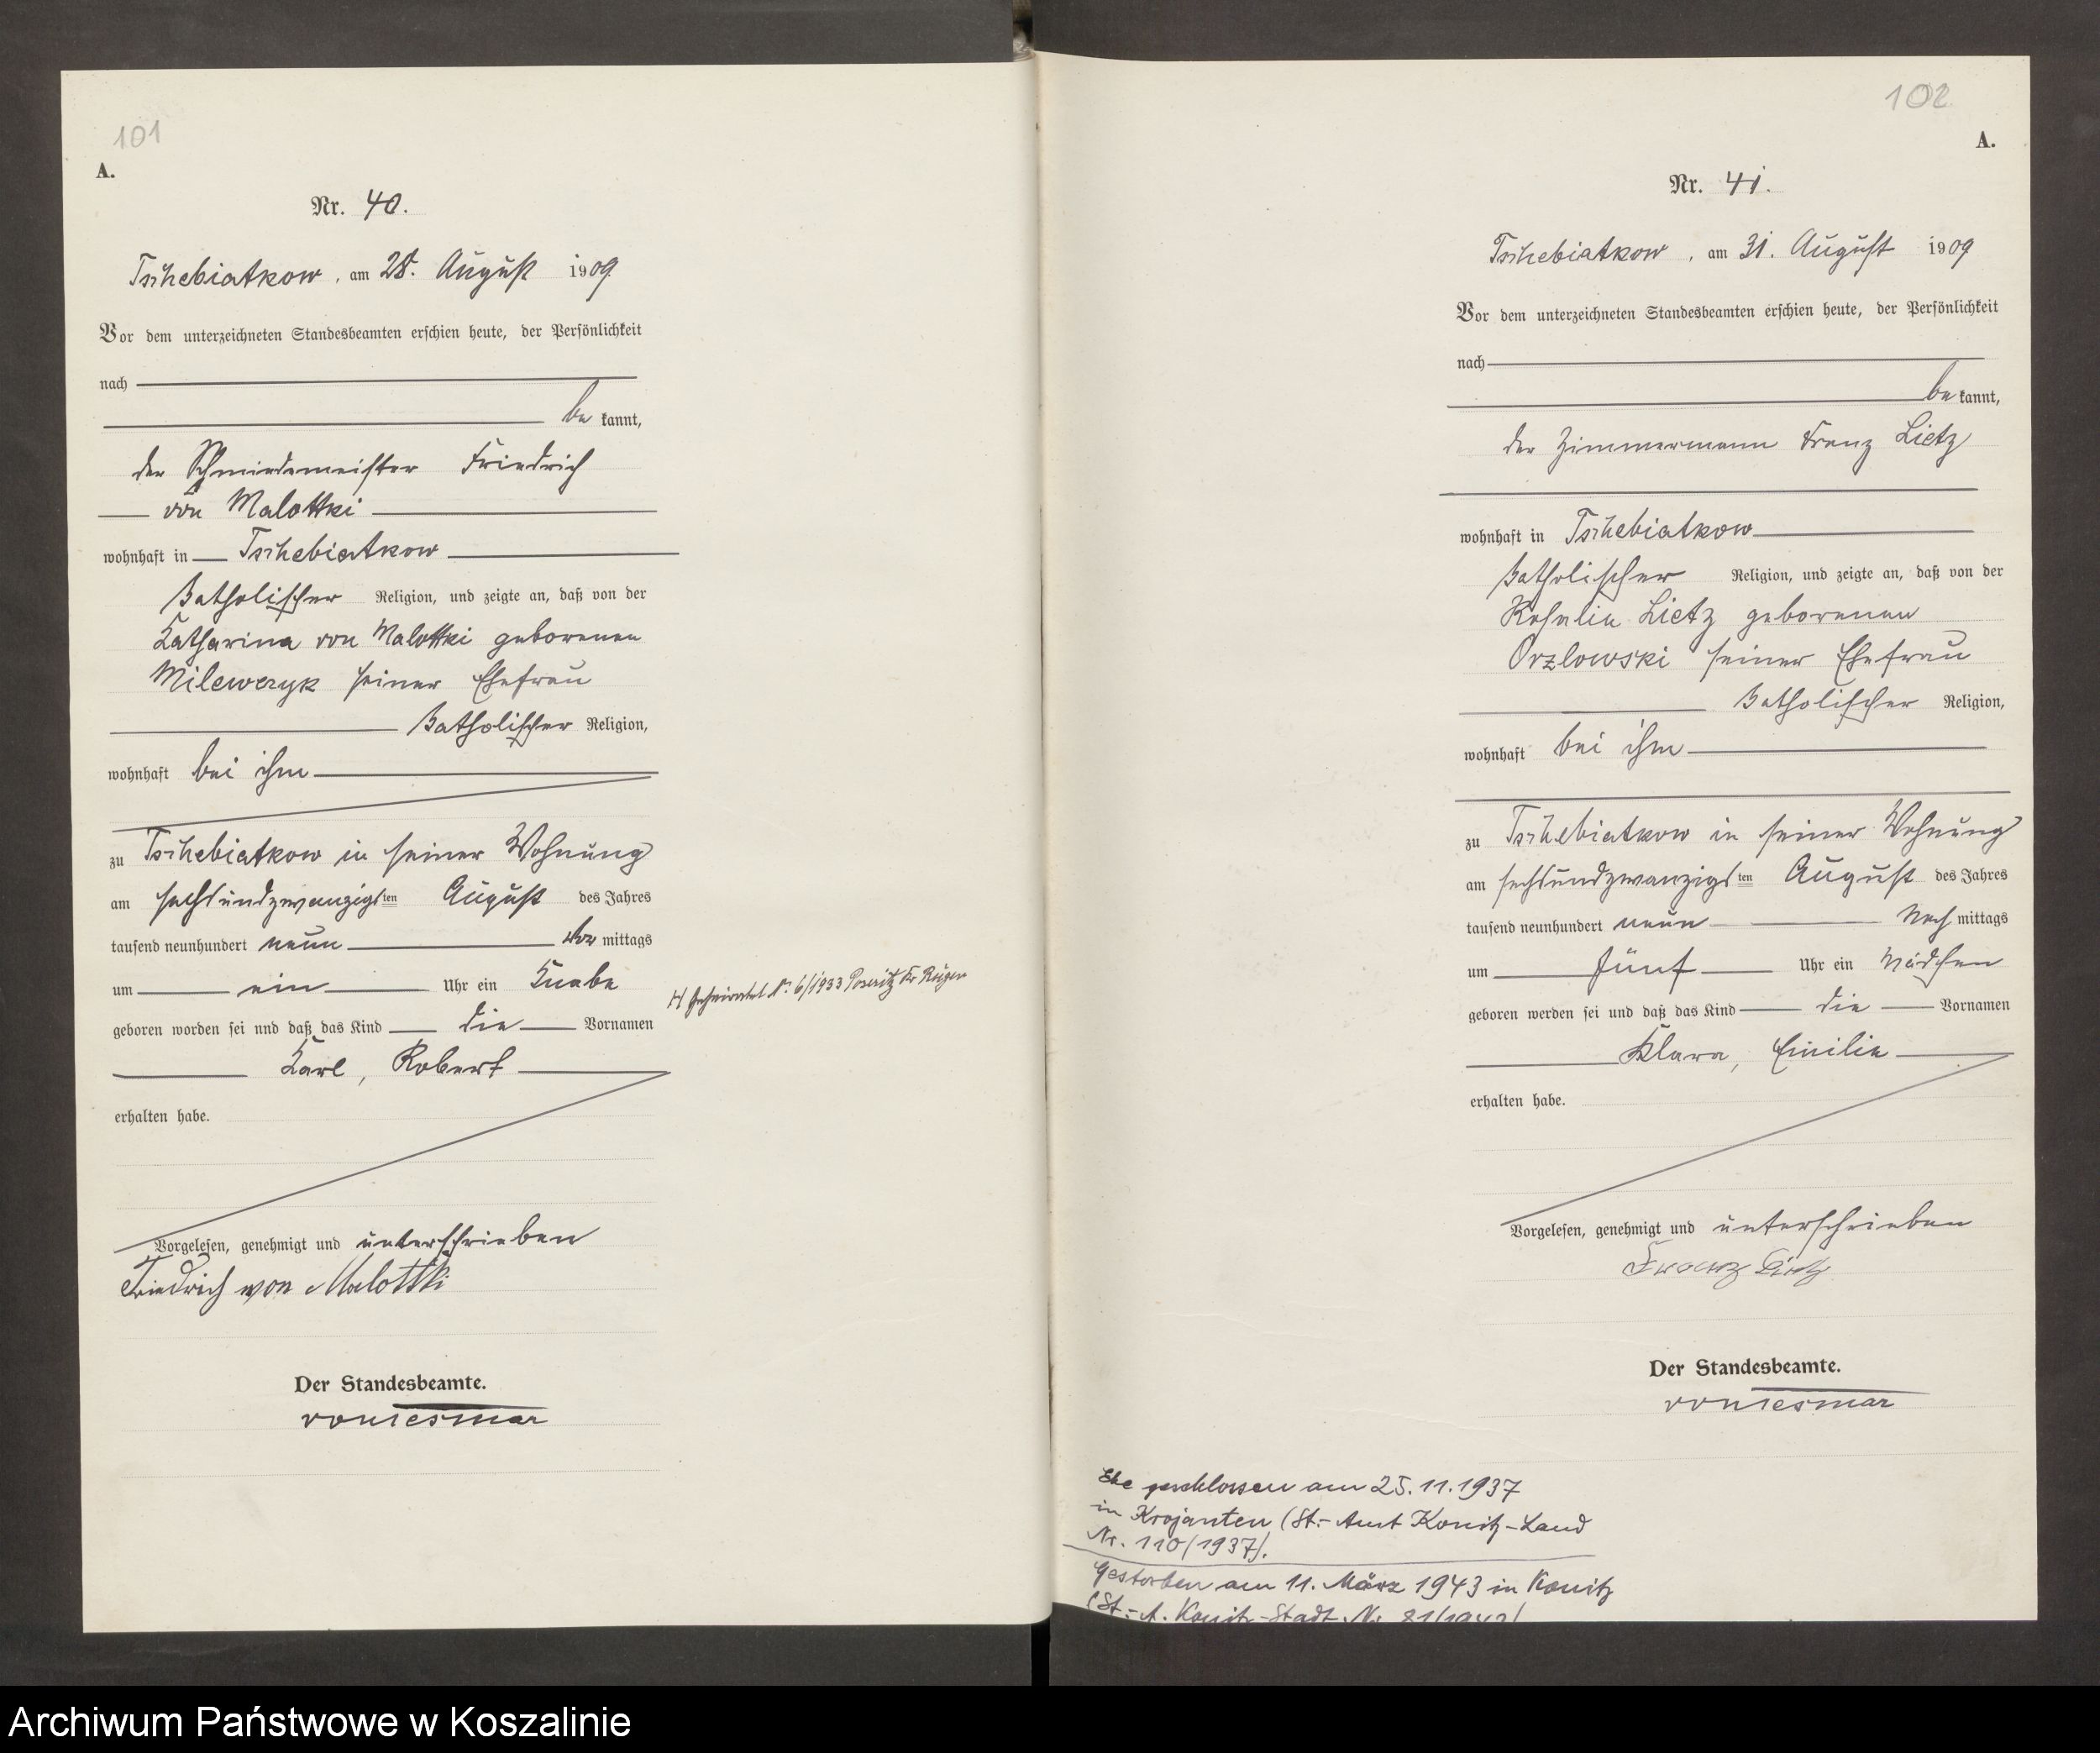 101
A.
Nr. 40.
Tschebiatkow, am 28. August 1909
Vor dem unterzeichneten Standesbeamten erschien heute, der Persönlichkeit
nach
be kannt,
der Schmiedemeister Friedrich
von Malottki
wohnhaft in Tschebiatkow
Katholischer Religion, und zeigte an, daß von der
Katharina von Malottki geborenen
Milewczyk seiner Ehefrau
Katholischer Religion,
wohnhaft bei ihm
zu Tschebiatkow in seiner Wohnung
am sechsundzwanzigsten August des Jahres
tausend neunhundert neun Vor mittags
um ein Uhr ein Knabe
geboren worden sei und daß das Kind die Vornamen
Karl, Robert
erhalten habe.
Vorgelesen, genehmigt und unterschrieben
Friedrich von Malottki
Der Standesbeamte.
von Tesmar
H geheiratet Nr. 6/1933 Poseritz Kr Rügen
102
A.
Nr. 41.
Tschebiatkow, am 31. August 1909
Vor dem unterzeichneten Standesbeamten erschien heute, der Persönlichkeit
nach
be kannt,
der Zimmermann Franz Lietz
wohnhaft in Tschebiatkow
Katholischer Religion, und zeigte an, daß von der
Rosalie Lietz geborenen
Orzlowski seiner Ehefrau
Katholischer Religion,
wohnhaft bei ihm
zu Tschebiatkow in seiner Wohnung
am sechsundzwanzigsten August des Jahres
tausend neunhundert neun Nach mittags
um fünf Uhr ein Mädchen
geboren werden sei und daß das Kind die Vornamen
Klara, Emilie
erhalten habe.
Vorgelesen, genehmigt und unterschrieben
Franz Lietz
Der Standesbeamte.
von Tesmar
Ehe geschlossen am 25.11.1937
in Krojanten (St.-Amt Konitz-Land
Nr. 110/1937).
Gestorben am 11. März 1943 in Konitz
(St.-A. Konitz-Stadt Nr. 81/1943)
Archiwum Państwowe w Koszalinie